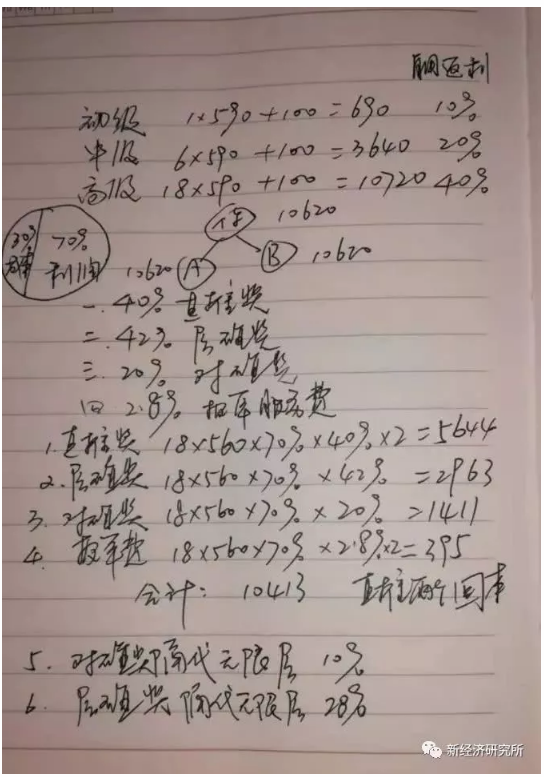 月返利
初级 1×590+100=690 10%
中级 6×590+100=3640 20%
高级 18×590+100=10720 40%
10620
30% 成本 70% 利润
10620 A B 10620
一. 40% 直推奖
二. 42% 层碰奖
三. 20% 对碰奖
四 2.8% 报单服务费
1.直推奖 18×560×70%×40%×2=5644
2.层碰奖 18×560×70%×42% =2963
3.对碰奖 18×560×70%×20% =1411
4. 报单费 18×560×70%×2.8%×2=395
合计: 10413 直推两个回本
5. 对碰奖隔代无限层 10%
6. 层碰奖隔代无限层 28%
新经济研究所